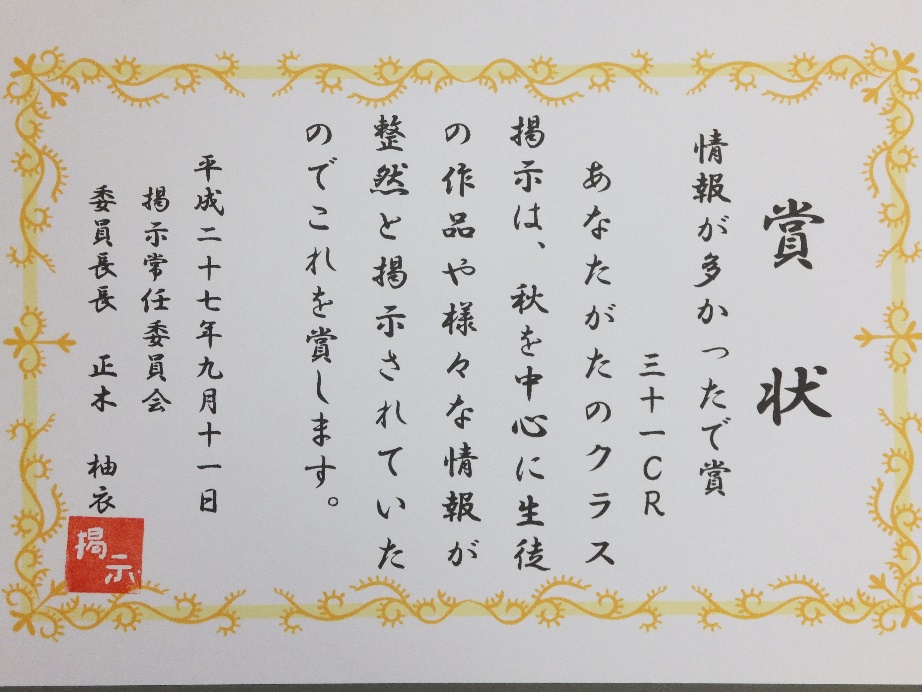 賞状
情報が多かったで賞
三十一CR
あなたがたのクラス
掲示は、秋を中心に生徒
の作品や様々な情報が
整然と掲示されていた
のでこれを賞します。
平成二十七年九月十一日
掲示常任委員会
委員長長 正木 柚衣
掲示